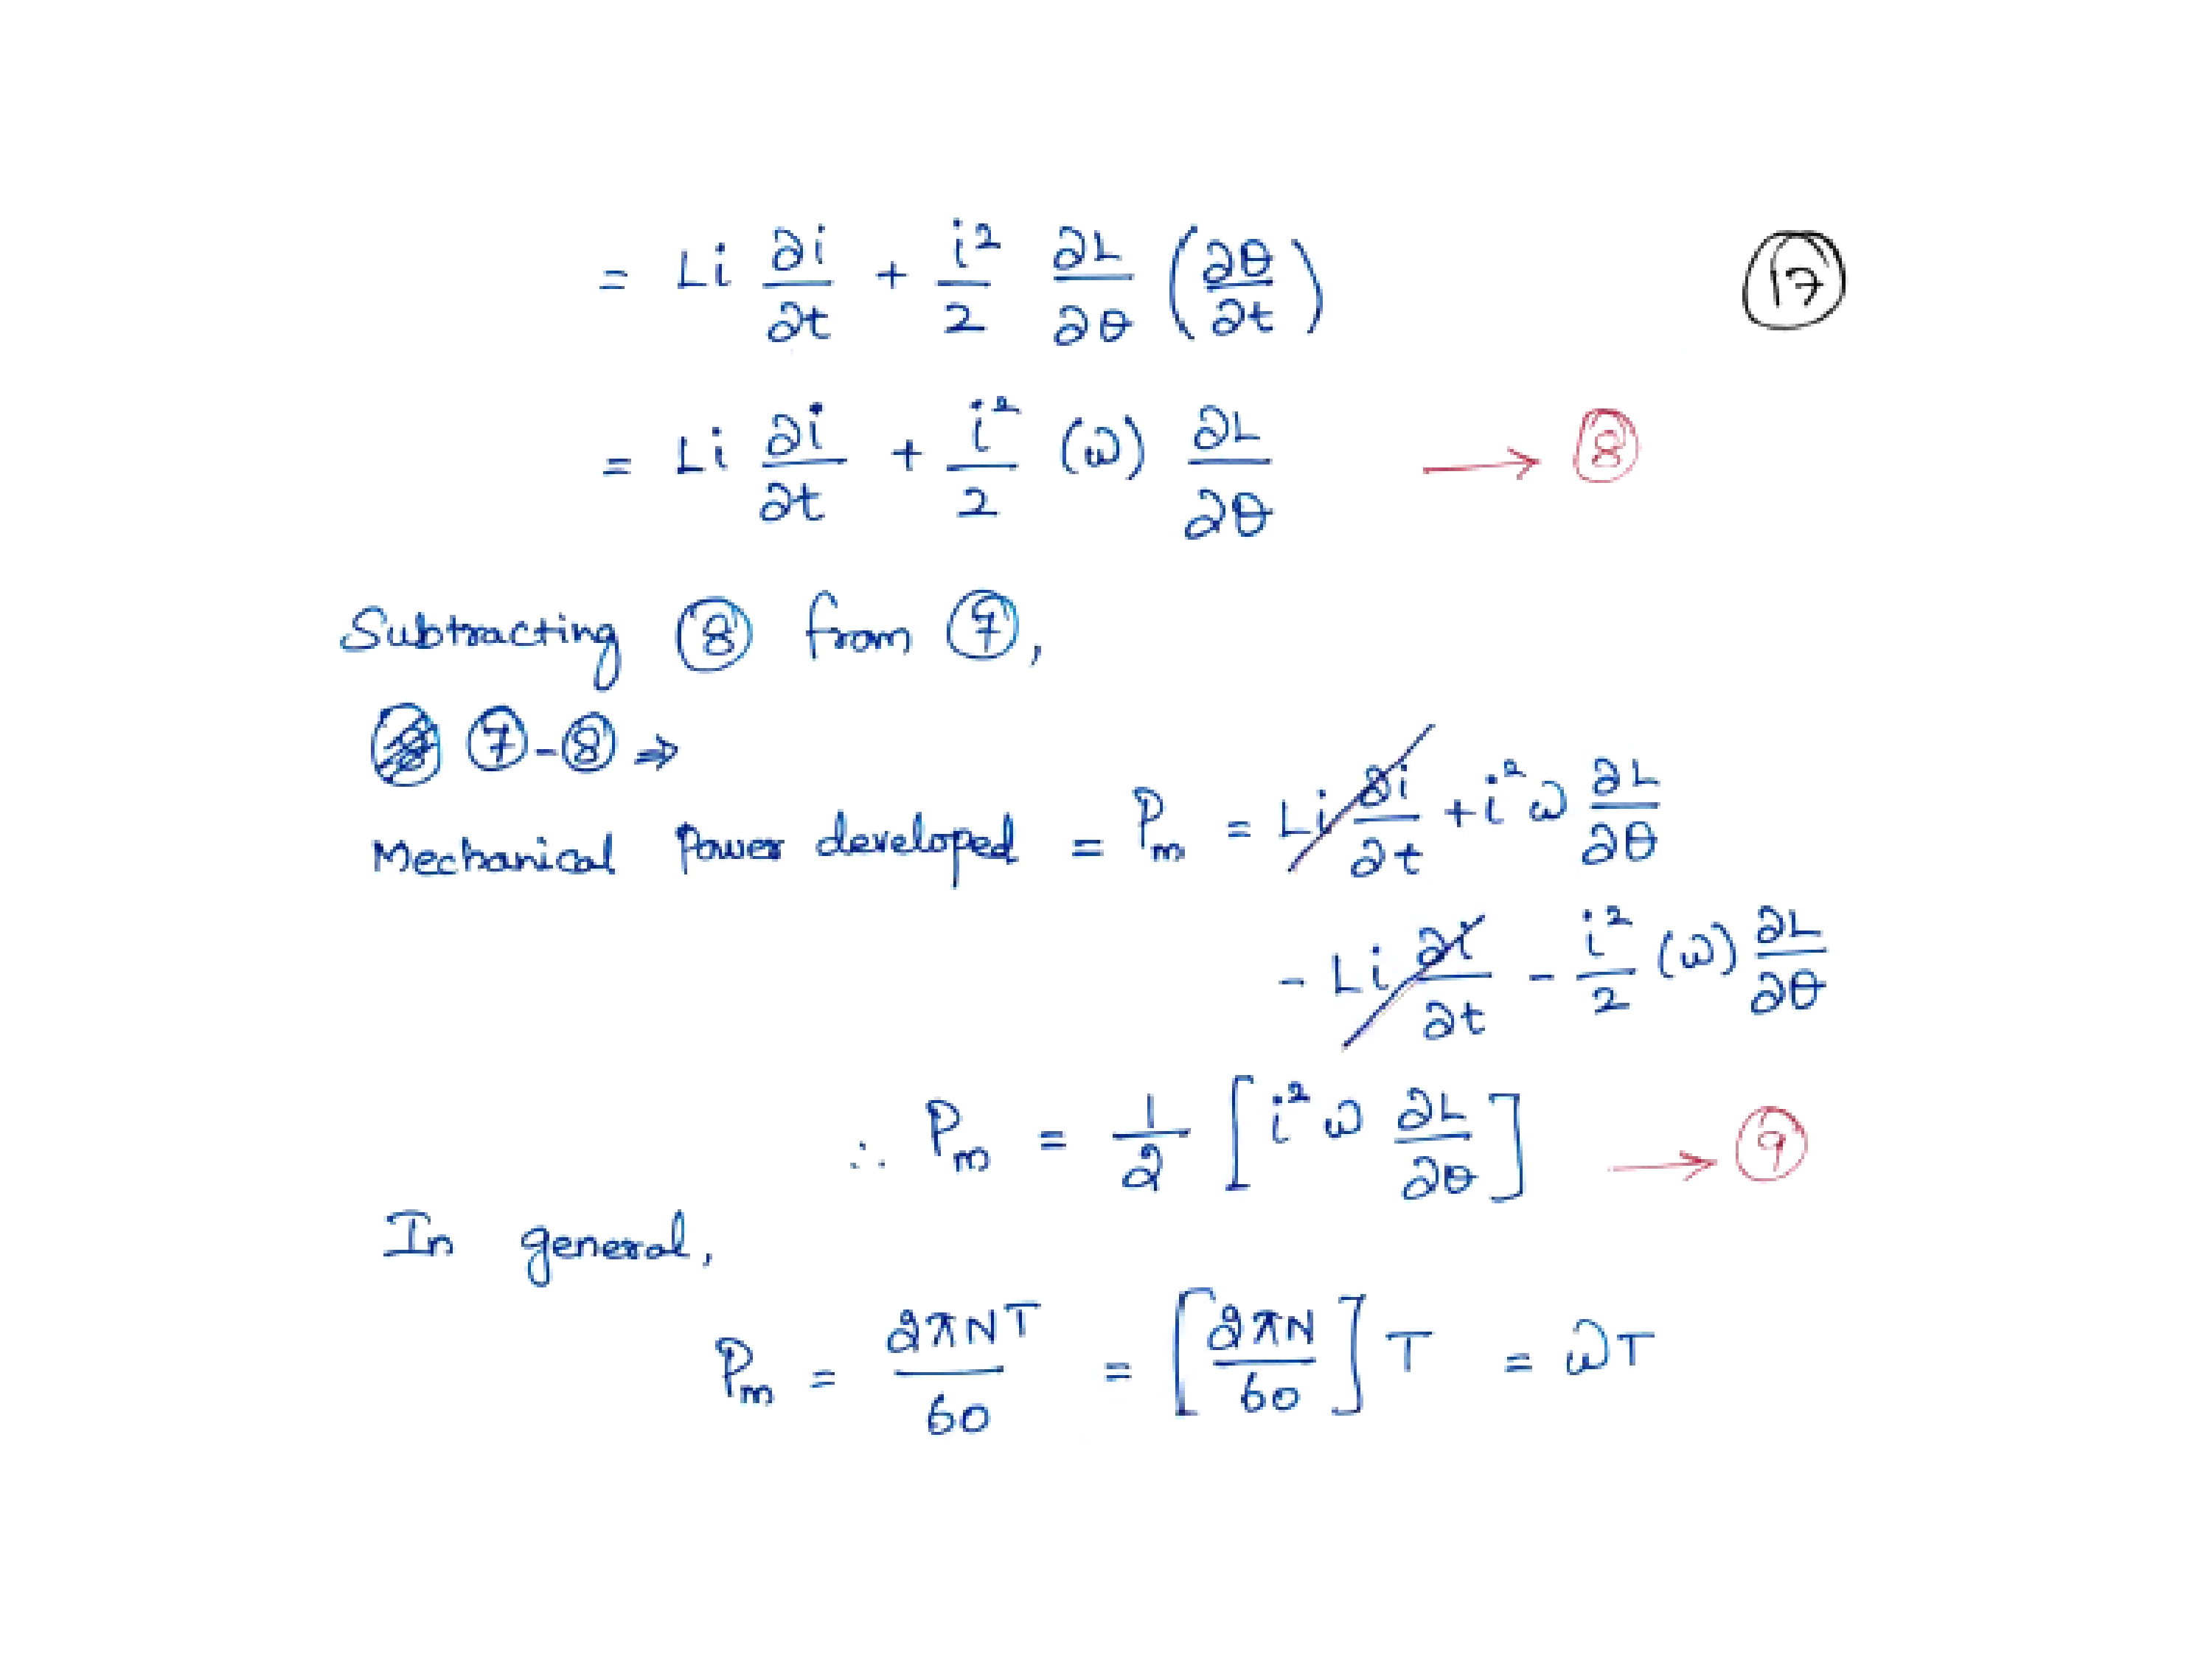 = Li ∂i/∂t + i²/2 ∂L/∂θ (∂θ/∂t) 17
= Li ∂i/∂t + i²/2 (ω) ∂L/∂θ → 8
Subtracting 8 from 7,
7 - 8 ⇒
Mechanical Power developed = Pm = Li ∂i/∂t + i² ω ∂L/∂θ
- Li ∂i/∂t - i²/2 (ω) ∂L/∂θ
∴ Pm = 1/2 [i² ω ∂L/∂θ] → 9
In general,
Pm = 2πNT/60 = [2πN/60] T = ωT